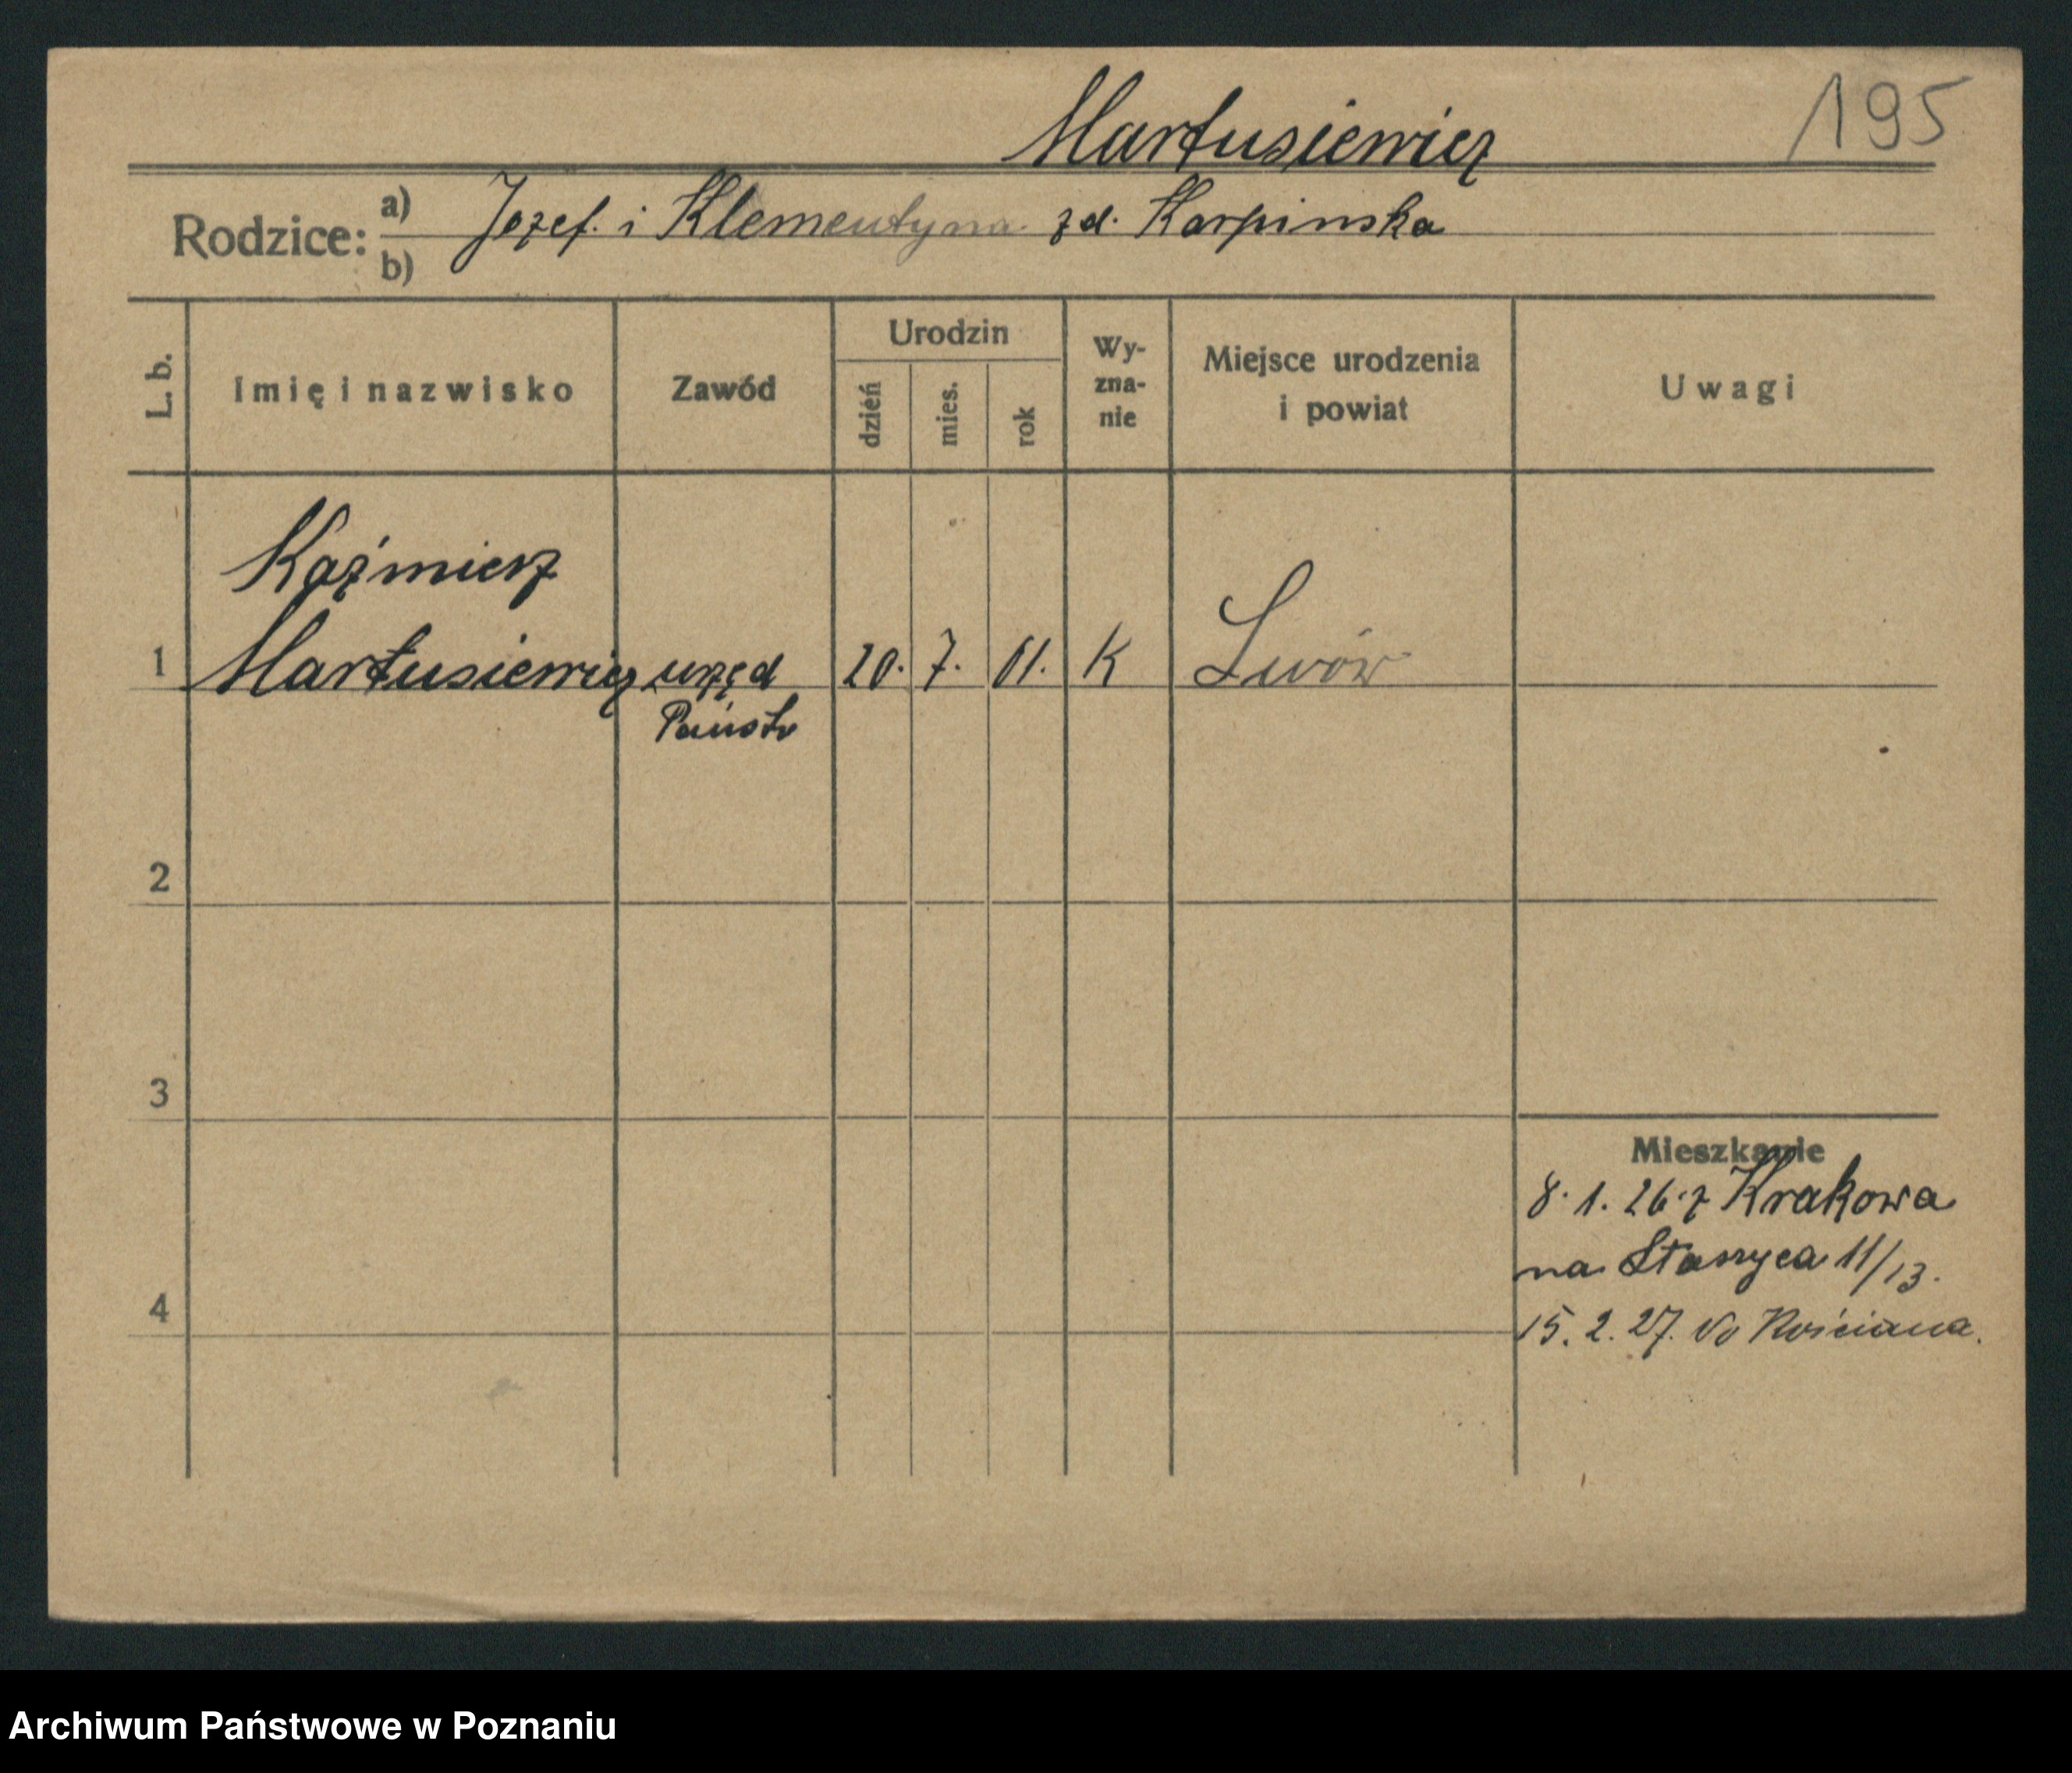 Martusiewicz
195
Rodzice: a) Jozef. i Klementyna zd. Karpinska
b)
L. b. Imię i nazwisko Zawód Urodzin dzień mies. rok Wy-zna-nie Miejsce urodzenia i powiat Uwagi
Kaźmierz
1 Martusiewicz urzęd 20. 7. 01. K Lwów
Państw
2
3
Mieszkanie
8. 1. 26. z Krakowa
na Staszyca 11/13.
4
15. 2. 27. do Kościana.
Archiwum Państwowe w Poznaniu